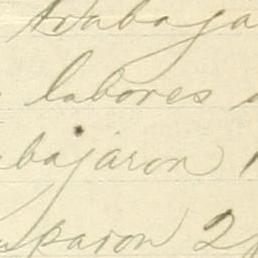 trabaja
labores
bajaron
paron 2